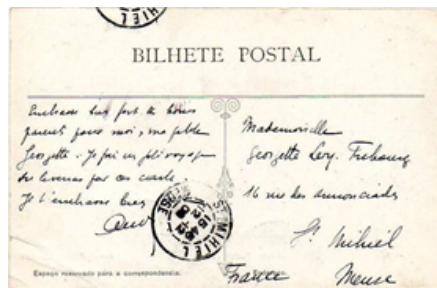 MIHIEL
BILHETE POSTAL
Embrasse bien fort tes bons
parents pour moi, ma petite
Georgette. Je fais un joli voyage
par ces cartes.
Je t'embrasse bien
Mademoiselle
Georgette Levy. Fribourg
16 rue des Annonciades
St Mihiel
Meuse
France
ST MIHIEL
MEUSE
Espaço reservado para a correspondencia.